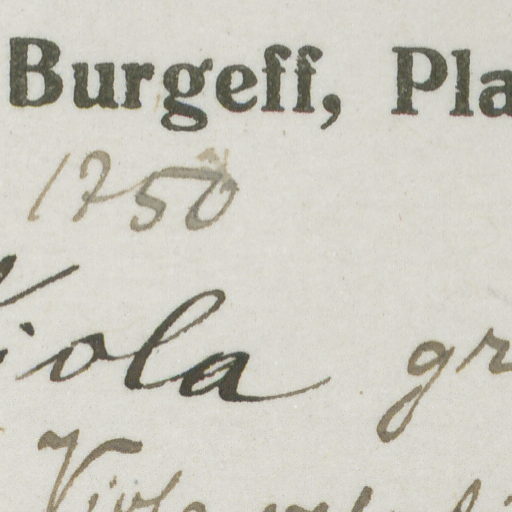 Burgeff, Pla
1750
Viola gr
Viola